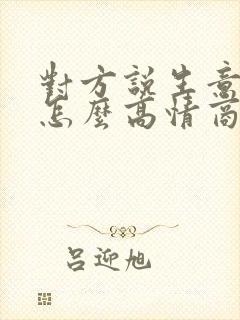 對方說生意
怎麼高情商
呂迎旭